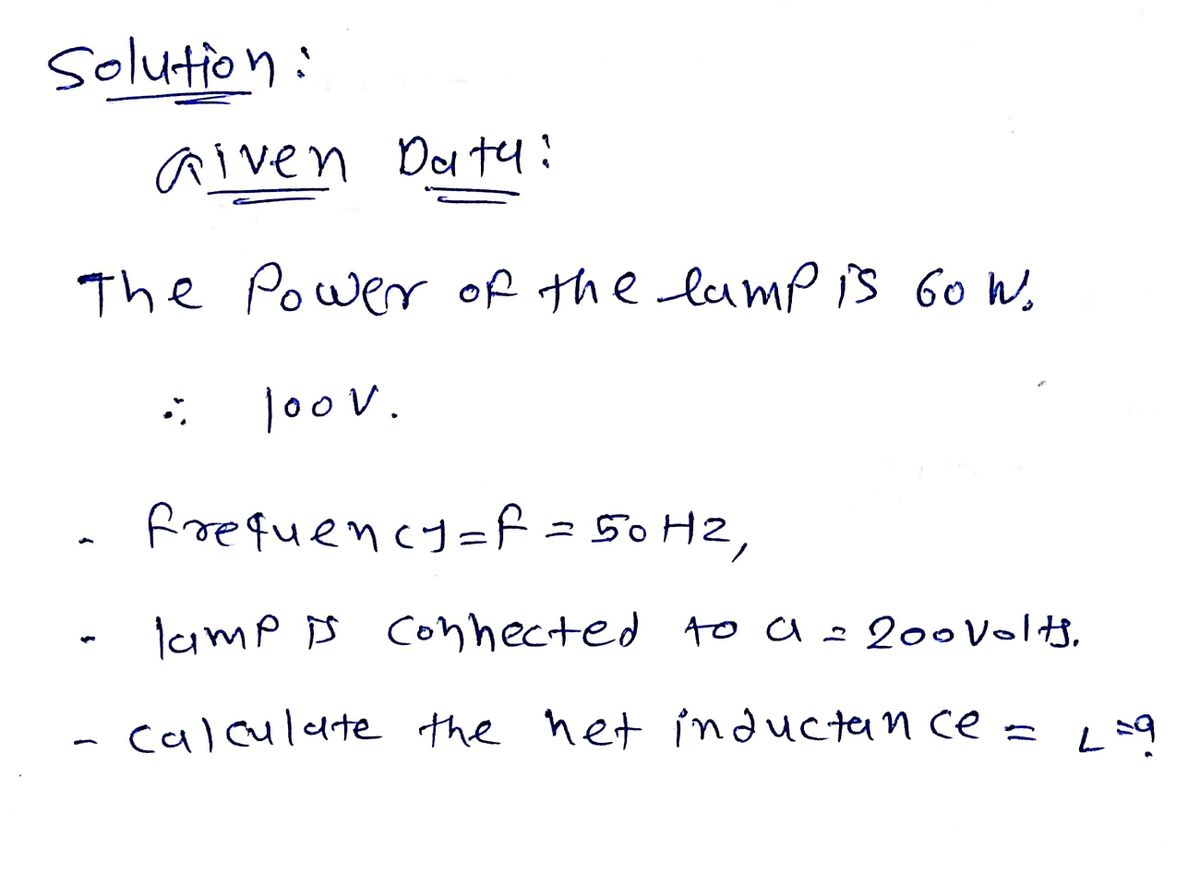 Solution:
Given Data:
The Power of the lamp is 60 W.
∴ 100 V.
- frequency = f = 50 Hz,
- lamp is connected to a = 200 Volts.
- Calculate the net inductance = L = ?